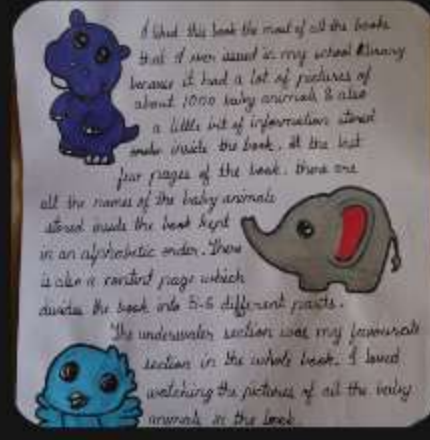 I liked this book the most of all the books
that I ever issued in my school library
because it had a lot of pictures of
about 1000 baby animals & also
a little bit of information stored
inside the book. At the last
few pages of the book, there are
all the names of the baby animals
stored inside the book kept
in an alphabetic order. There
is also a content page which
divides the book into 5-6 different parts.
The underwater section was my favourite
section in the whole book. I loved
watching the pictures of all the baby
animals in the book.